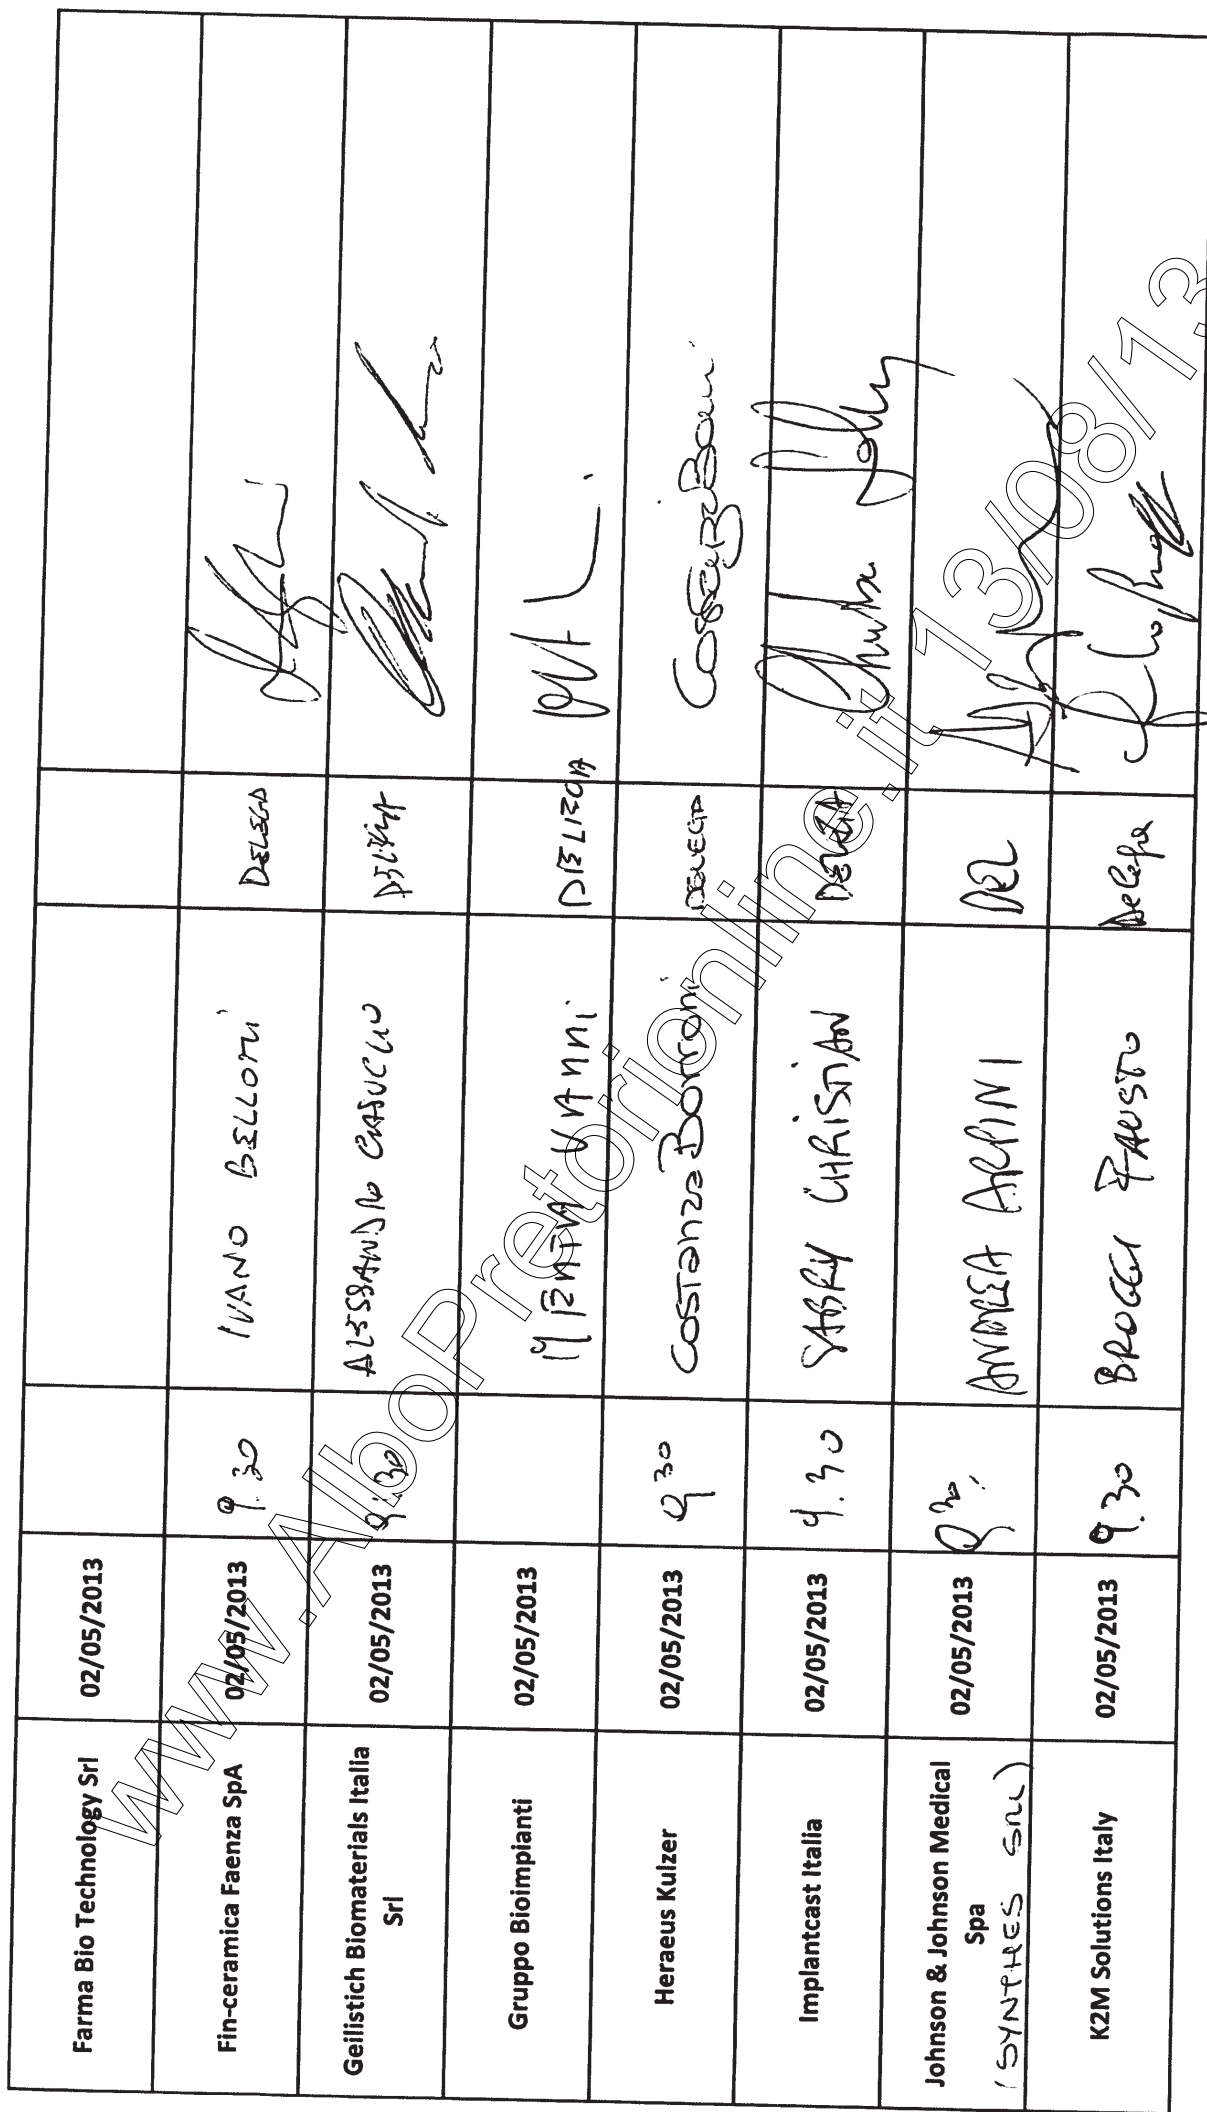 Farma Bio Technology Srl 02/05/2013
Fin-ceramica Faenza SpA 02/05/2013 9.30 IVANO BELLOMI DELEGA
Geilistich Biomaterials Italia
Srl
02/05/2013 9.30 ALESSANDRO DELEGA
Gruppo Bioimpianti 02/05/2013 VANNI DELEGA
Heraeus Kulzer 02/05/2013 9 30 COSTANZA Borroni DELEGA
Implantcast Italia 02/05/2013 9.30 SABRY CHRISTIAN DELEGA
Johnson & Johnson Medical
Spa
(SYNTHES SRL)
02/05/2013 9 30. ANDREA ARPINI DEL
K2M Solutions Italy 02/05/2013 9.30 BROGGI FAUSTO Delega
www.AlboPretorionline.it 13/08/13